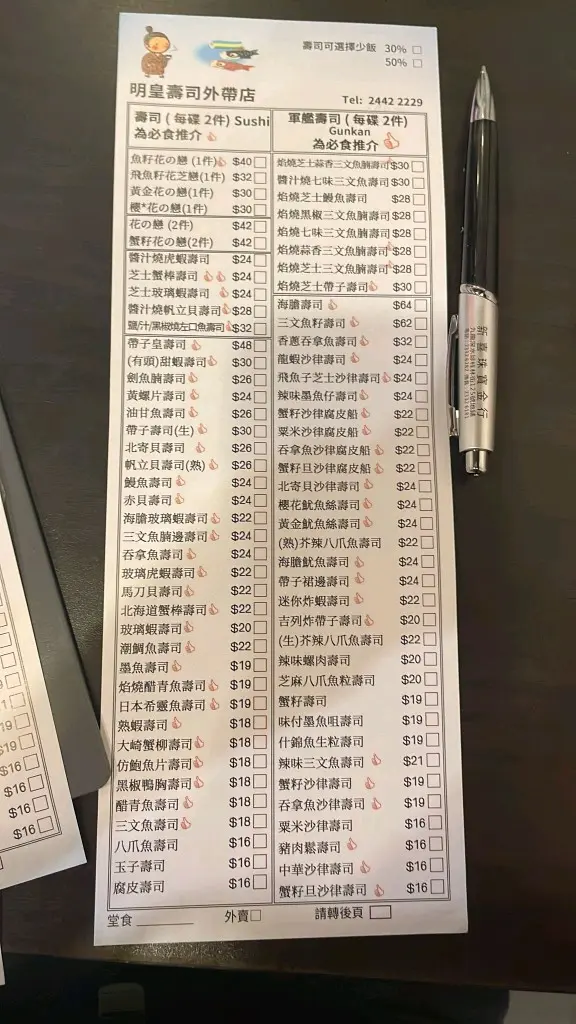 壽司可選擇少飯 30% □
50% □
明皇壽司外帶店
Tel: 2442 2229
壽司 ( 每碟 2件) Sushi
為必食推介
魚籽花の戀 (1件) $40 □
飛魚籽花芝戀(1件) $32 □
黃金花の戀(1件) $30 □
櫻*花の戀(1件) $30 □
花の戀 (2件) $42 □
蟹籽花の戀(2件) $42 □
醬汁燒虎蝦壽司 $24 □
芝士蟹棒壽司 $24 □
芝士玻璃蝦壽司 $24 □
醬汁燒帆立貝壽司 $28 □
鹽/汁/黑椒燒左口魚壽司 $32 □
帶子皇壽司 $48 □
(有頭)甜蝦壽司 $30 □
劍魚腩壽司 $26 □
黃螺片壽司 $24 □
油甘魚壽司 $26 □
帶子壽司(生) $30 □
北寄貝壽司 $26 □
帆立貝壽司(熟) $26 □
鰻魚壽司 $24 □
赤貝壽司 $24 □
海膽玻璃蝦壽司 $22 □
三文魚腩邊壽司 $24 □
吞拿魚壽司 $24 □
玻璃虎蝦壽司 $22 □
馬刀貝壽司 $22 □
北海道蟹棒壽司 $22 □
玻璃蝦壽司 $20 □
潮鯛魚壽司 $22 □
墨魚壽司 $19 □
焰燒醋青魚壽司 $19 □
日本希靈魚壽司 $19 □
熟蝦壽司 $18 □
大崎蟹柳壽司 $18 □
仿鮑魚片壽司 $18 □
黑椒鴨胸壽司 $18 □
醋青魚壽司 $18 □
三文魚壽司 $18 □
八爪魚壽司 $16 □
玉子壽司 $16 □
腐皮壽司 $16 □
軍艦壽司 ( 每碟 2件)
Gunkan
為必食推介
焰燒芝士蒜香三文魚腩壽司 $30 □
醬汁燒七味三文魚腩壽司 $30 □
焰燒芝士鰻魚壽司 $28 □
焰燒黑椒三文魚腩壽司 $28 □
焰燒七味三文魚腩壽司 $28 □
焰燒蒜香三文魚腩壽司 $28 □
焰燒芝士三文魚腩壽司 $28 □
焰燒芝士帶子壽司 $30 □
海膽壽司 $64 □
三文魚籽壽司 $62 □
香蔥吞拿魚壽司 $32 □
龍蝦沙律壽司 $24 □
飛魚子芝士沙律壽司 $24 □
辣味墨魚仔壽司 $24 □
蟹籽沙律腐皮船 $22 □
粟米沙律腐皮船 $22 □
吞拿魚沙律腐皮船 $22 □
蟹籽旦沙律腐皮船 $22 □
北寄貝沙律壽司 $24 □
櫻花魷魚絲壽司 $24 □
黃金魷魚絲壽司 $24 □
(熟)芥辣八爪魚壽司 $22 □
海膽魷魚壽司 $24 □
帶子裙邊壽司 $24 □
迷你炸蝦壽司 $22 □
吉列炸帶子壽司 $20 □
(生)芥辣八爪魚壽司 $22 □
辣味螺肉壽司 $20 □
芝麻八爪魚粒壽司 $20 □
蟹籽壽司 $19 □
味付墨魚咀壽司 $19 □
什錦魚生粒壽司 $19 □
辣味三文魚壽司 $21 □
蟹籽沙律壽司 $19 □
吞拿魚沙律壽司 $19 □
粟米沙律壽司 $16 □
豬肉鬆壽司 $16 □
中華沙律壽司 $16 □
蟹籽旦沙律壽司 $16 □
堂食 ________ 外賣□ 請轉後頁 □
新喜珠寶金行
19 □
$19 □
$16 □
$16 □
$16 □
$16 □